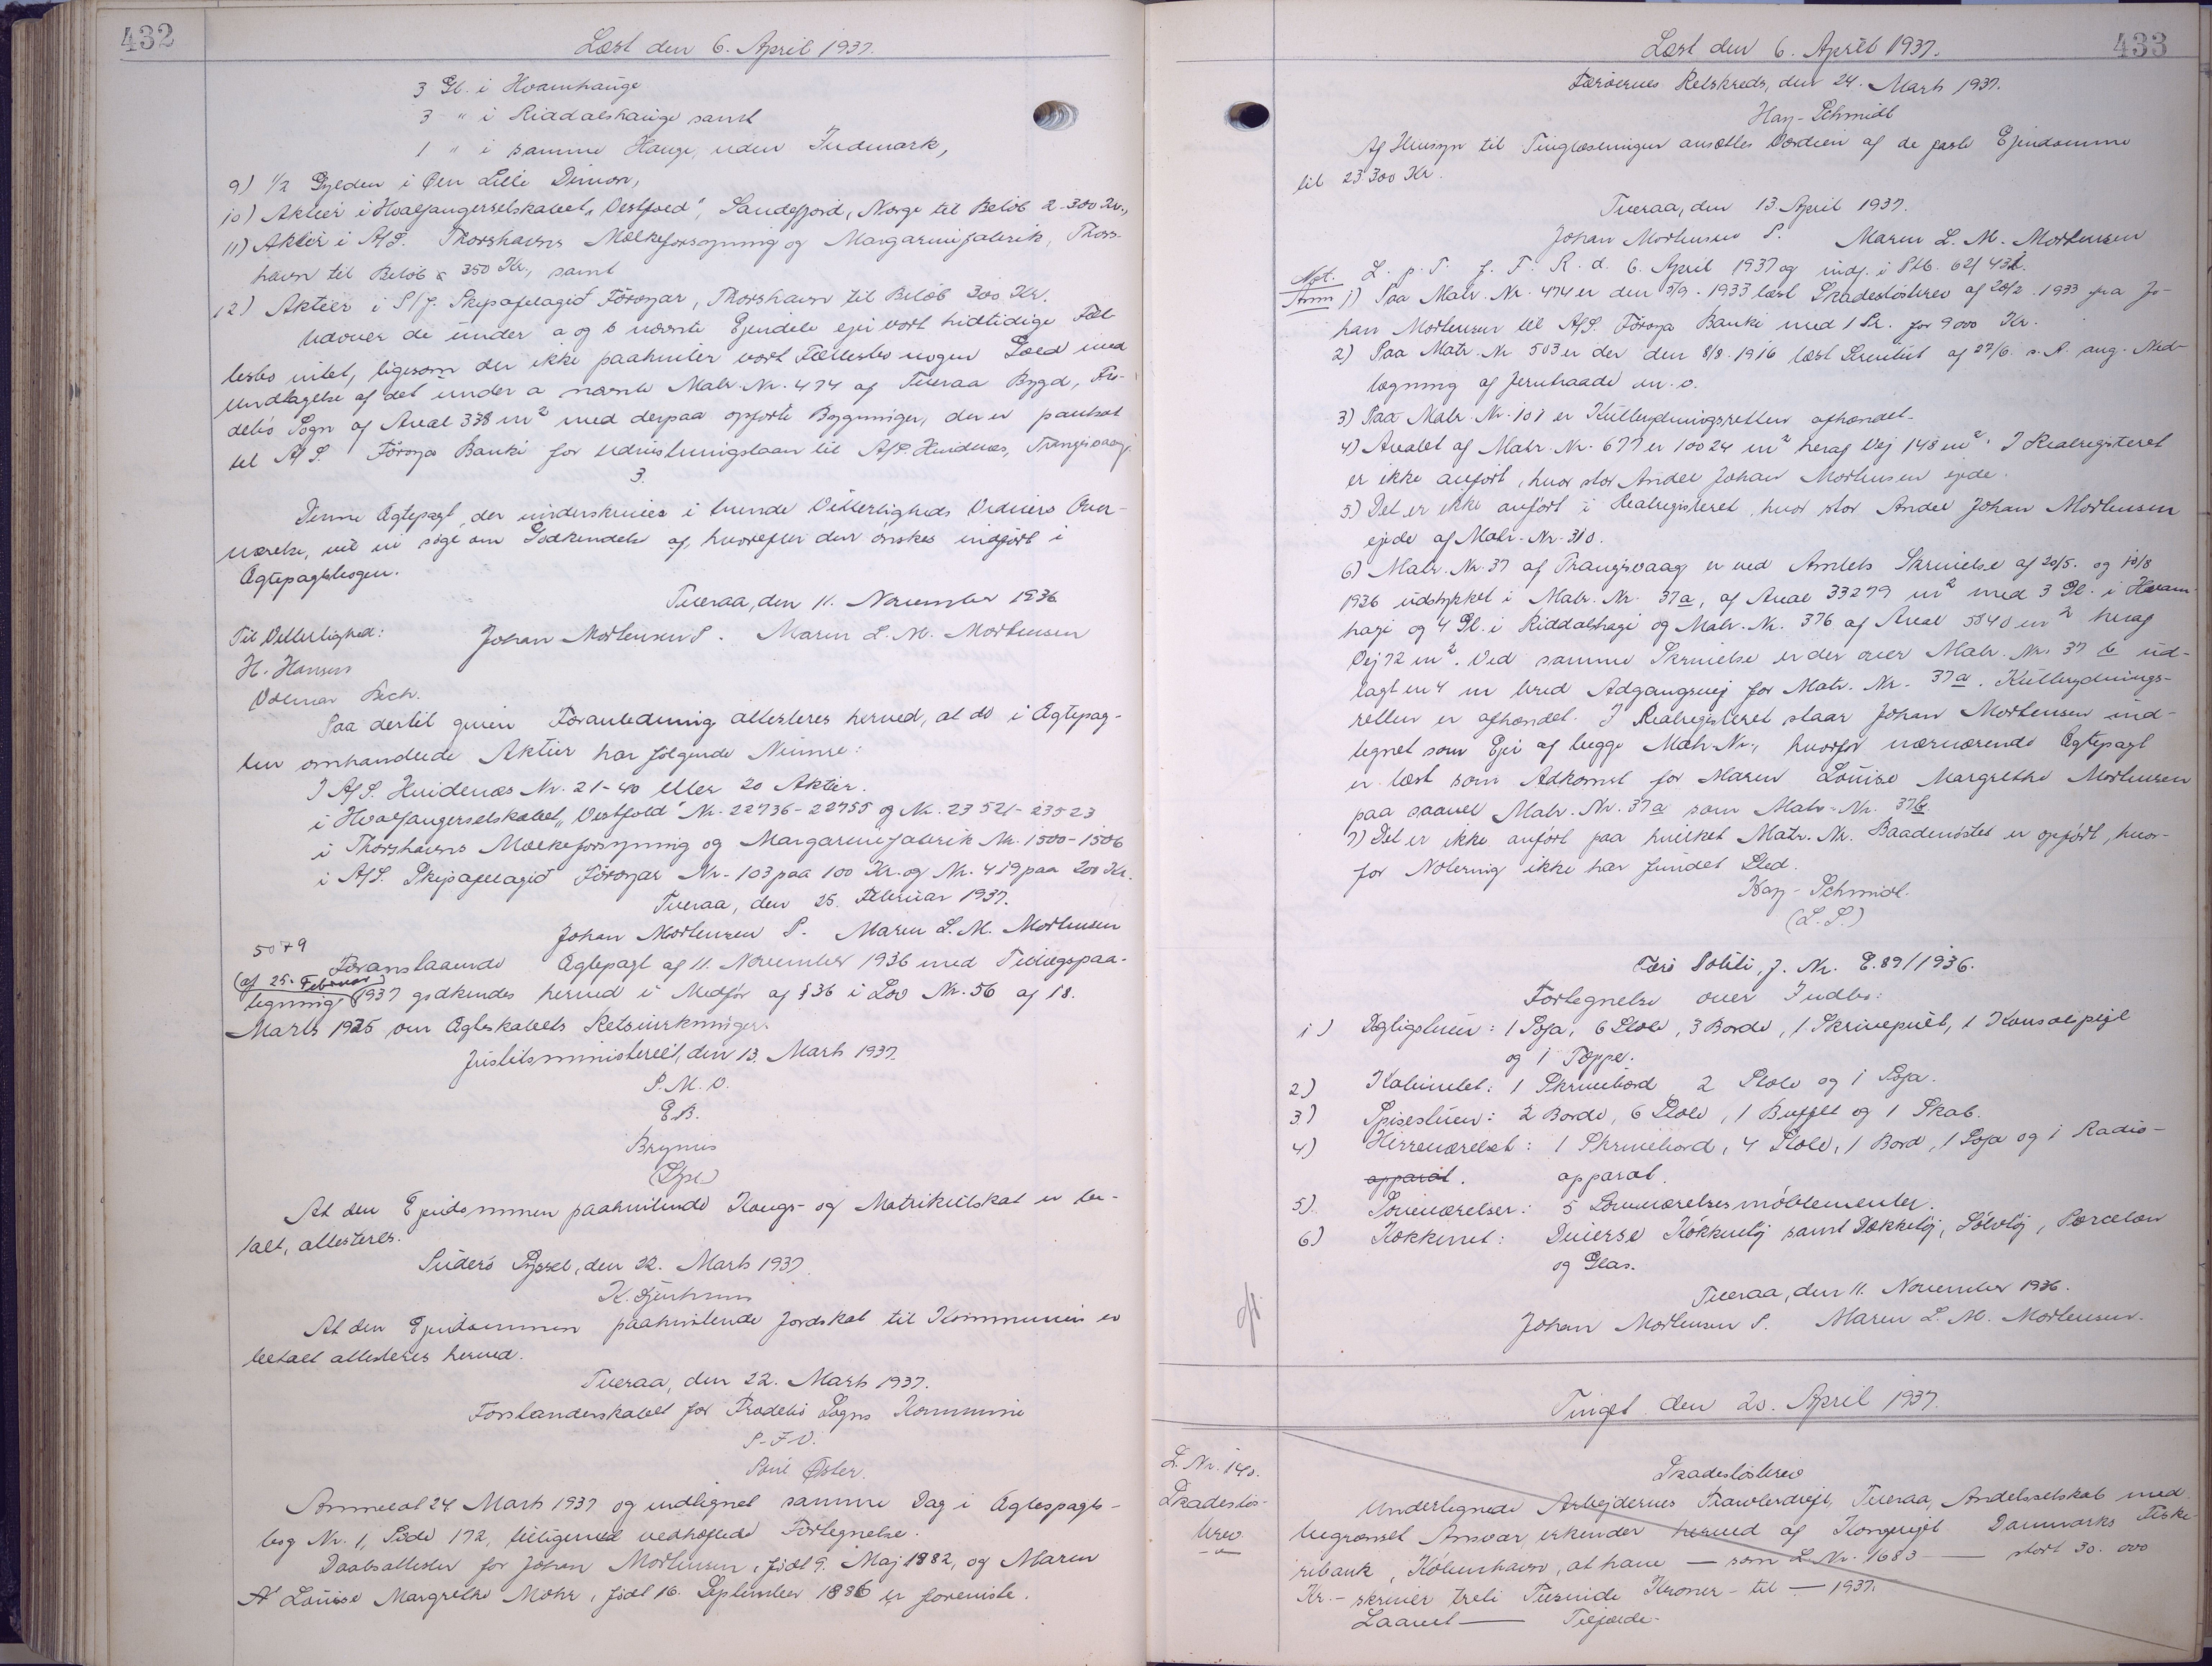 432
Læst den 6. April 1937.
3 Gl. i Hvamhauge
3 " i Riddalshauge samt
1 " i samme Hauge, uden Indmark,
9) 1/2 Gylden i Øen Lille Dimon,
10) Aktier i Hvalfangerselskabet "Vestfold", Sandefjord, Norge til Beløb 2.300 Kr.,
11) Aktier i A/S. Thorshavns Mælkeforsyning og Margarinefabrik, Thors-
havn til Beløb 350 Kr., samt
12) Aktier i P/f. Skipafelagið Föroyar, Thorshavn til Beløb 300 Kr.
Udover de under a og b nævnte Ejendele ejer vort hidtidige Fæl-
lesbo intet, ligesom der ikke paahviler vort Fællesbo nogen Gæld med
Undtagelse af det under a nævnte Matr. Nr. 474 af Tveraa Bygd, Fro-
debø Sogn af Areal 338 m² med derpaa opførte Bygninger, der er pantsat
til A/S. Föroya Banki for Udrustningslaan til A/S. Hvidnæs, Trangisvaag.
3.
Denne Ægtepagt, der underskrives i tvende Vitterligheds Vidners Over-
værelse, vil vi søge om Godkendelse af, hvorefter den ønskes indført i
Ægtepagtsbogen.
Tveraa, den 11. November 1936
Til Vitterlighed: Johan Mortensen P. Maren L. M. Mortensen
H. Hansen
Volmar Bech.
Paa dertil given Foranledning attesteres herved, at de i Ægtepag-
ten omhandlede Aktier har følgende Numre:
I A/S. Hvidenæs Nr. 21-40 eller 20 Aktier.
i Hvalfangerselskabet "Vestfold" Nr. 22736-22755 og Nr. 23521-23523
i Thorshavns Mælkeforsyning og Margarinefabrik Nr. 1500-1506
i A/S. Skipafelagið Föroyar Nr. 103 paa 100 Kr. og Nr. 419 paa 200 Kr.
Tveraa, den 25. Februar 1937.
Johan Mortensen P. Maren L. M. Mortensen
5079
Foranstaaende Ægtepagt af 11. November 1936 med Tillægspaa-
(af 25. Februar)
tegning 1937 godkendes herved i Medfør af § 36 i Lov Nr. 56 af 18.
Marts 1925 om Ægteskabets Retsvirkninger.
Justitsministeriet, den 13. Marts 1937.
P. M. V.
E.B.
At den Ejendommen paahvilende Kongs- og Matrikulskat er be-
talt, attesteres.
Suderø Syssel, den 22. Marts 1937.
At den Ejendommen paahvilende Jordskat til Kommunen er
betalt attesteres herved.
Tveraa, den 22. Marts 1937.
Forstanderskabet for Frodebø Sogns Kommune
P. F. V.
Poul Øster.
Anmeldt 24 Marts 1937 og indtegnet samme Dag i Ægtespagts-
bog Nr. 1, Side 172, tilligemed vedhæftede Fortegnelse.
Daabsattester for Johan Mortensen, født 9. Maj 1882, og Maren
Louise Margrethe Mohr, født 16. September 1886 er foreviste.
433
Læst den 6. April 1937.
Færøernes Retskreds, den 24. Marts 1937.
Hay-Schmidt
Af Hensyn til Tinglæsningen ansættes Værdien af de faste Ejendomme
til 23300 Kr.
Tveraa, den 13 April 1937.
Johan Mortensen P. Maren L. M. Mortensen
Not. L. p. T. f. F. R. d. 6. April 1937 og indf. i Ptb.
Anm 1) Paa Matr. Nr. 474 er den 5/9 1933 læst Skadesløsbrev af 28/2 1933 fra Jo-
han Mortensen til A/S. Föroya Banki med 1 Pr. for 9000 Kr.
2) Paa Matr. Nr 503 er der den 8/8. 1916 læst Servitut af 27/6. s. A. ang. Ned-
lægning af Jerntraade m. v.
3) Paa Matr. Nr. 101 er Kulbrydningsretten afhændet.
4) Arealet af Matr. Nr. 677 er 10024 m² heraf Vej 148 m². I Realregisteret
er ikke anført, hvor stor Andel Johan Mortensen ejede.
5) Det er ikke anført i Realregisteret, hvor stor Andel Johan Mortensen
ejede af Matr. Nr. 310.
6) Matr. Nr. 37 af Trangisvaag er ved Amtets Skrivelse af 20/5. og 10/8
1936 udstykket i Matr. Nr. 37a, af Areal 33279 m² med 3 Gl. i Hvam-
hagi og 4 Gl. i Riddalshagi og Matr. Nr. 376 af Areal 5840 m² heraf
Vej 72 m². Ved samme Skrivelse er der over Matr. Nr. 37 b ud-
lagt en 4 m bred Adgangsvej for Matr. Nr. 37a. Kulbrydnings-
retten er afhændet. I Realregisteret staar Johan Mortensen ind-
tegnet som Ejer af begge Matr. Nr., hvorfor nærværende Ægtepagt
er læst som Adkomst for Maren Louise Margrethe Mortensen
paa saavel Matr. Nr. 37a som Matr. Nr. 37b.
7) Det er ikke anført paa hvilket Matr. Nr. Baadenøstet er opført, hvor-
for Notering ikke har fundet Sted.
Hay-Schmidt.
(L.S.)
Færø Politi, J. Nr. E. 89/1936.
Fortegnelse over Indbo:
1) Dagligstuen: 1 Sofa, 6 Stole, 3 Borde, 1 Skrivepult, 1 Konsolspejl
og 1 Tæppe.
2) Kabinettet: 1 Skrivebord, 2 Stole og 1 Sofa.
3) Spisestuen: 2 Borde, 6 Stole, 1 Buffet og 1 Skab.
4) Herreværelset: 1 Skrivebord, 4 Stole, 1 Bord, 1 Sofa og 1 Radio-
apparat. apparat.
5) Soveværelser: 5 Soveværelsesmøblementer.
6) Køkkenet: Diverse Køkkentøj samt Dækketøj, Sølvtøj, Porcelæn
og Glas.
Tveraa, den 11. November 1936.
Johan Mortensen P. Maren L. M. Mortensen.
Tinget den 20. April 1937.
L. Nr. 140.
Skadesløs-
brev
Skadesløsbrev
Undertegnede Arbejdernes Trawlerdrift, Tveraa, Andelsselskab med
begrænset Ansvar, erkender herved af Kongeriget Danmarks Fiske-
ribank, København, at have — som L. Nr. 1683 — stort 30.000
Kr. - skriver treti Tusinde Kroner - til — 1937.
Laanet — Tilfælde.